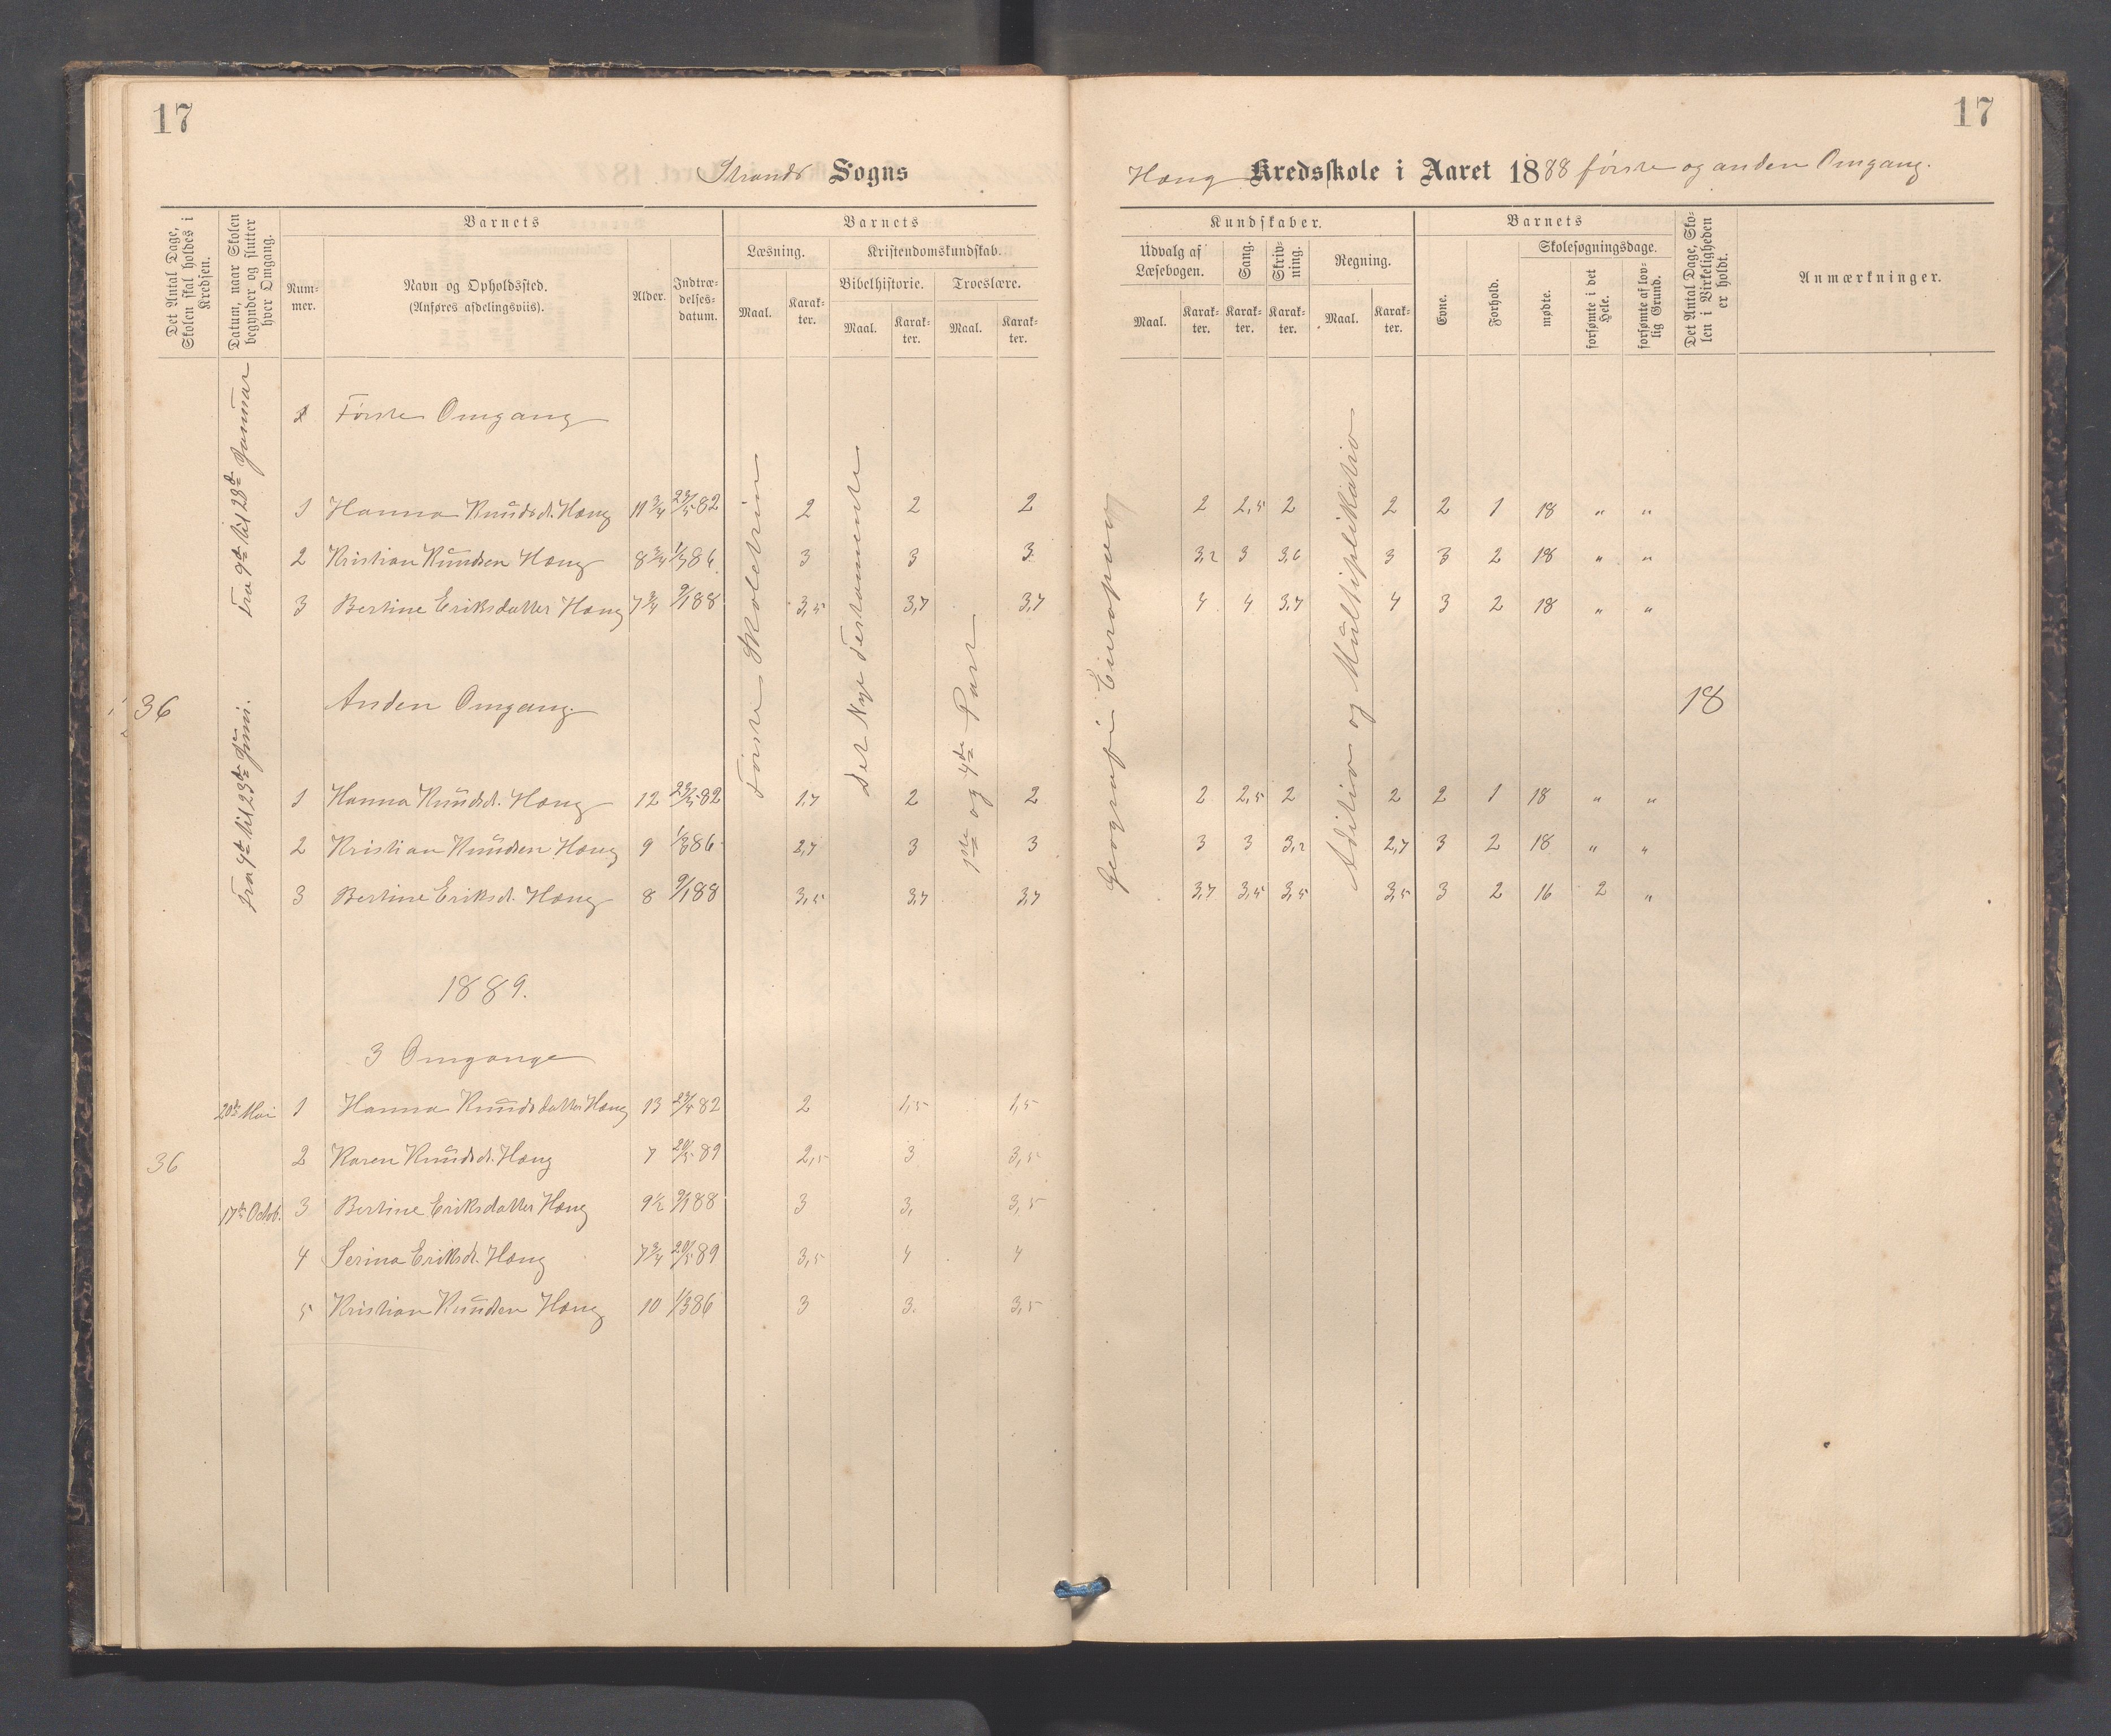 17
17
Strands Sogns
Haug Kredsskole i Aaret 1888 første og anden Omgang.
Det Antal Dage, Skolen skal holdes i Kredsen.
Datum, naar Skolen begynder og slutter hver Omgang.
Barnets
Nummer.
Navn og Opholdssted.
(Anføres afdelingsviis).
Alder.
Indtrædelsesdatum.
Barnets
Læsning.
Maal.
Karakter.
Kristendomskundskab.
Bibelhistorie.
Maal.
Karakter.
Troeslære.
Maal.
Karakter.
Kundskaber.
Udvalg af Læsebogen.
Maal.
Karakter.
Sang.
Karakter.
Skrivning.
Karakter.
Regning.
Maal.
Karakter.
Barnets
Evne.
Forhold.
Skolesøgningsdage.
mødte.
forsømte i det Hele.
forsømte af lovlig Grund.
Det Antal Dage, Skolen i Virkeligheden er holdt.
Anmærkninger.
Fra 9de til 28de Januar
Første Skoletrin
Det Nye Testamente
1ste og 4de Part
Geografi Europa
Adition og Multiplikation
Første Omgang
1 Hanna Knudsd. Haug 11 3/4 23/5 82 2 2 2 2 2,5 2 2 2 1 18 " "
2 Kristian Knudsen Haug 8 3/4 1/3 86 3 3 3 3,2 3 3,6 3 3 2 18 " "
3 Bertine Eriksdatter Haug 7 3/4 9/1 88 3,5 3,7 3,7 4 4 3,7 4 3 2 18 " "
36 Anden Omgang. 18
Fra 4de til 23de Juni.
1 Hanna Knudsd. Haug 12 23/5 82 1,7 2 2 2 2,5 2 2 2 1 18 " "
2 Kristian Knudsen Haug 9 1/3 86 2,7 3 3 3 3 3,2 2,7 3 2 18 " "
3 Bertine Eriksd. Haug 8 9/1 88 3,5 3,7 3,7 3,7 3,5 3,5 3,5 3 2 16 2 "
1889.
3 Omgange
20de Mai 1 Hanna Knudsdatter Haug 13 23/5 82 2 1,5 1,5
36 2 Karen Knudsd. Haug 7 20/5 89 2,5 3 3,5
17de Octob. 3 Bertine Eriksdatter Haug 9 1/2 9/1 88 3 3, 3,5
4 Serina Eriksd. Haug 7 3/4 20/5 89 3,5 4 4
5 Kristian Knudsen Haug 10 1/3 86 3 3. 3,5